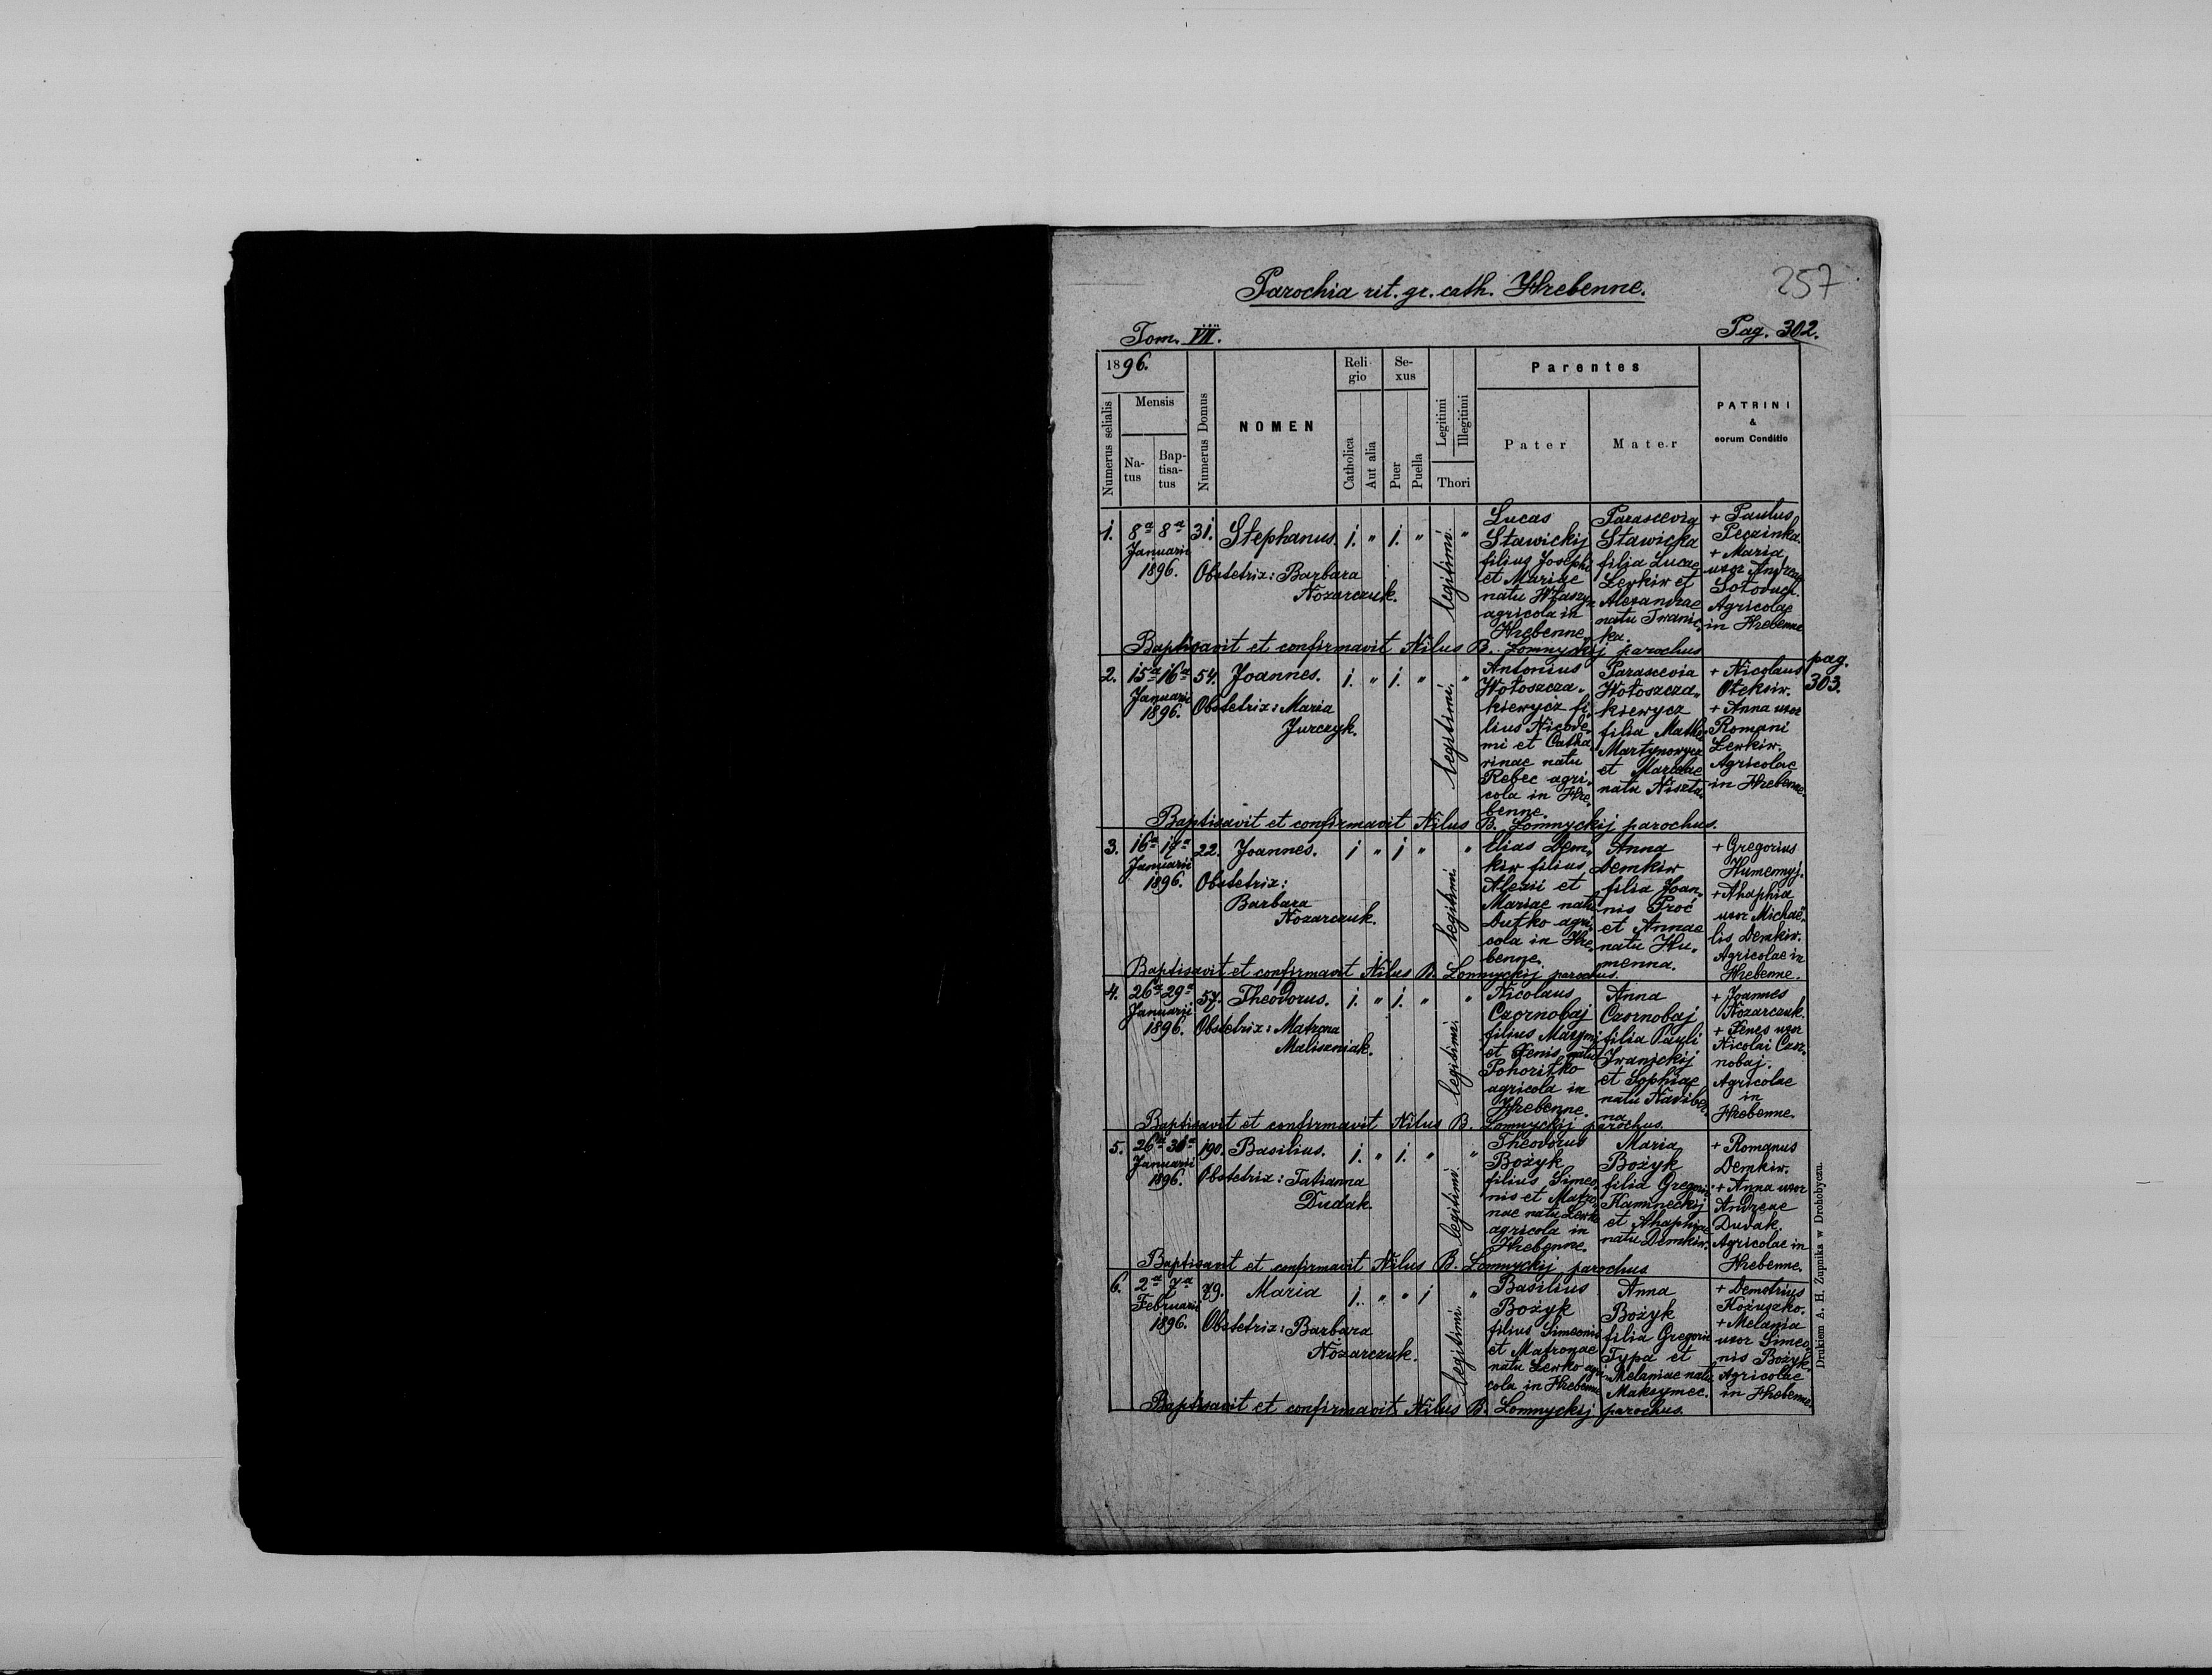 Parochia rit. gr. cath. Hrebenne.
257
Tom. VII.
Pag. 302.
1896.
Numerus serialis
Mensis
Natus
Baptisatus
Numerus Domus
NOMEN
Religio
Catholica
Aut alia
Sexus
Puer
Puella
Legitimi
Illegitimi
Thori
Parentes
Pater
Mater
PATRINI
&
eorum Conditio
1. 8a 8a Januarii 1896. 31. Stephanus. 1. " 1. " legitimi. "
Obstetrix: Barbara
Nozarczuk.
Lucas
Stawickij
filius Josephi
et Mariae
natu Wtaszyn
agricola in
Hrebenne.
Parascevia
Stawicka
filia Lucae
Lewkiw et
Alexandrae
natu Iwanic,
ka.
+ Paulus
Peczinka.
+ Maria
uxor Andreae
Sołoduch.
Agricolae
in Hrebenne
Baptisavit et confirmavit Nilus B. Lomnyckij parochus
pag.
303.
2. 15a 16a Januarii 1896. 54. Joannes. 1. " 1. " legitimi. "
Obstetrix: Maria
Jurczyk.
Antonius
Wołoszcza,
kiewycz fi,
lius Nicode,
mi et Catha,
rinae natu
Rebec agri,
cola in Hre,
benne.
Parascevia
Wołoszcza,
kiewycz
filia Mathi
Martynowycz
et Mariae
natu Niszta.
+ Nicolaus
Ołeksiw.
+ Anna uxor
Romani
Lewkiw.
Agricolae
in Hrebenne.
Baptisavit et confirmavit Nilus B. Lomnyckij parochus.
3. 16a 17a Januarii 1896. 22. Joannes. 1 " 1 " legitimi. "
Obstetrix:
Barbara
Nozarczuk.
Elias Dem,
kiw filius
Alexii et
Mariae natu
Dutko agri,
cola in Hre,
benne.
Anna
Demkiw
filia Joan,
nis Proć
et Annae
natu Hu,
menna.
+ Gregorius
Humennyj.
+ Ahaphia
uxor Michaë,
lis Demkiw.
Agricolae in
Hrebenne.
Baptisavit et confirmavit Nilus B. Lomnyckij parochus.
4. 26a 29a Januarii 1896. 57. Theodorus. 1. " 1. " legitimi. "
Obstetrix: Matrona
Maliszniak.
Nicolaus
Czornobaj
filius Maxymi
et Xenis natu
Pohoriłko
agricola in
Hrebenne.
Anna
Czornobaj
filia Pauli
Iwanickij
et Sophiae
natu Nadiber,
na.
+ Joannes
Nozarczuk.
+ Xenes uxor
Nicolai Czor,
nobaj.
Agricolae
in
Hrebenne.
Baptisavit et confirmavit Nilus B. Lomnyckij parochus.
5. 26a 30a Januarii 1896. 190. Basilius. 1. " 1. " legitimi. "
Obstetrix: Tatianna
Dudak.
Theodorus
Bożyk
filius Simeo,
nis et Matro,
nae natu Lewko
agricola in
Hrebenne.
Maria
Bożyk
filia Gregorii
Kamineckij
et Ahaphiae
natu Demkiw.
+ Romanus
Demkiw.
+ Anna uxor
Andreae
Dudak.
Agricolae in
Hrebenne.
Baptisavit et confirmavit Nilus B. Lomnyckij parochus
6. 2a 7a Februarii 1896. 79. Maria 1. " " 1 legitimi. "
Obstetrix: Barbara
Nozarczuk.
Basilius
Bożyk
filius Simeonis
et Matronae
natu Lewko agri
cola in Hrebenne
Anna
Bożyk
filia Gregorii
Typa et
Melaniae natu
Maksymec.
+ Demetrius
Kożuszko.
+ Melania
uxor Simeo
nis Bożyk.
Agricolae
in Hrebenne.
Baptisavit et confirmavit Nilus B. Lomnyckij parochus.
Drukiem A. H. Żupnika w Drohobyczu.